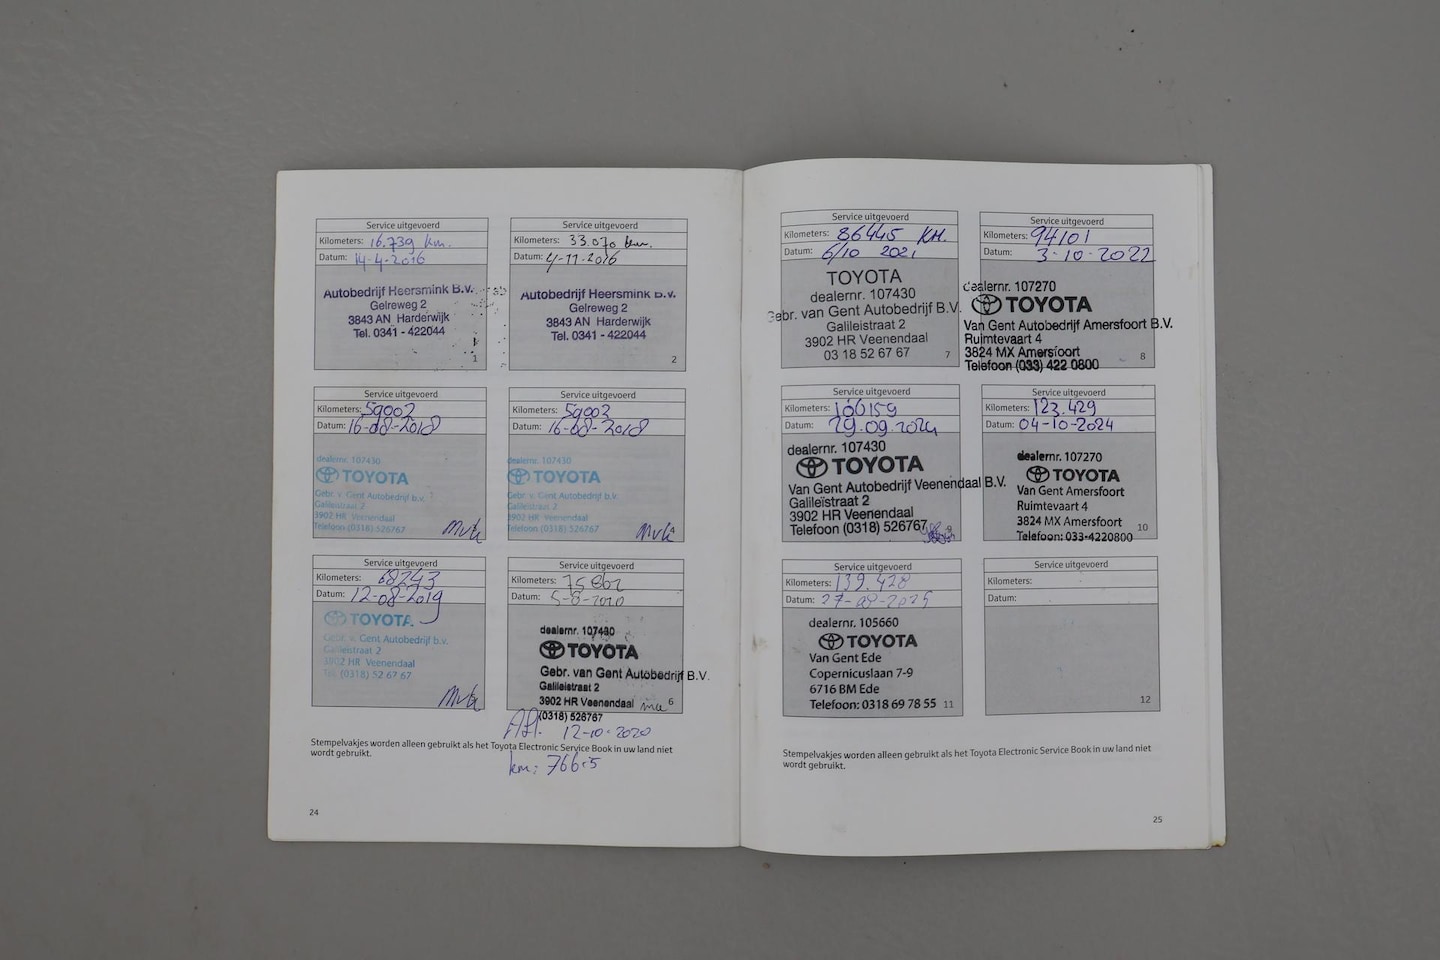 Service uitgevoerd
Kilometers: 16.739 km.
Datum: 14-4-2016
Autobedrijf Heersmink B.V.
Gelreweg 2
3843 AN Harderwijk
Tel. 0341 - 422044
1
Service uitgevoerd
Kilometers: 33.070 km.
Datum: 4-11-2016
Autobedrijf Heersmink B.V.
Gelreweg 2
3843 AN Harderwijk
Tel. 0341 - 422044
2
Service uitgevoerd
Kilometers: 59002
Datum: 16-08-2018
dealernr. 107430
TOYOTA
Gebr. v. Gent Autobedrijf b.v.
Galileistraat 2
3902 HR Veenendaal
Telefoon (0318) 526767
Service uitgevoerd
Kilometers: 59002
Datum: 16-08-2018
dealernr. 107430
TOYOTA
Gebr. v. Gent Autobedrijf b.v.
Galileistraat 2
3902 HR Veenendaal
Telefoon (0318) 526767
Service uitgevoerd
Kilometers: 68243
Datum: 12-08-2019
TOYOTA
Gebr. v. Gent Autobedrijf b.v.
Galileistraat 2
3902 HR Veenendaal
Tel. (0318) 52 67 67
Service uitgevoerd
Kilometers:
Datum: 5-8-2020
dealernr. 107430
TOYOTA
Gebr. van Gent Autobedrijf B.V.
Galileistraat 2
3902 HR Veenendaal
6
(0318) 526767
Afl. 12-10-2020
Stempelvakjes worden alleen gebruikt als het Toyota Electronic Service Book in uw land niet
wordt gebruikt.
km:
24
Service uitgevoerd
Kilometers: 86445 KM.
Datum: 6/10 2021
TOYOTA
dealernr. 107430
Gebr. van Gent Autobedrijf B.V.
Galileistraat 2
3902 HR Veenendaal
03 18 52 67 67
7
Service uitgevoerd
Kilometers: 94101
Datum: 3-10-2022
dealernr. 107270
TOYOTA
Van Gent Autobedrijf Amersfoort B.V.
Ruimtevaart 4
3824 MX Amersfoort
Telefoon (033) 422 0800
8
Service uitgevoerd
Kilometers: 106159
Datum: 29.09.2024
dealernr. 107430
TOYOTA
Van Gent Autobedrijf Veenendaal B.V.
Galileïstraat 2
3902 HR Veenendaal
Telefoon (0318) 526767
9
Service uitgevoerd
Kilometers: 123.429
Datum: 04-10-2024
dealernr. 107270
TOYOTA
Van Gent Amersfoort
Ruimtevaart 4
3824 MX Amersfoort
Telefoon: 033-4220800
10
Service uitgevoerd
Kilometers: 139.428
Datum: 27-08-2025
dealernr. 105660
TOYOTA
Van Gent Ede
Copernicuslaan 7-9
6716 BM Ede
Telefoon: 0318 69 78 55
11
Service uitgevoerd
Kilometers:
Datum:
12
Stempelvakjes worden alleen gebruikt als het Toyota Electronic Service Book in uw land niet
wordt gebruikt.
25